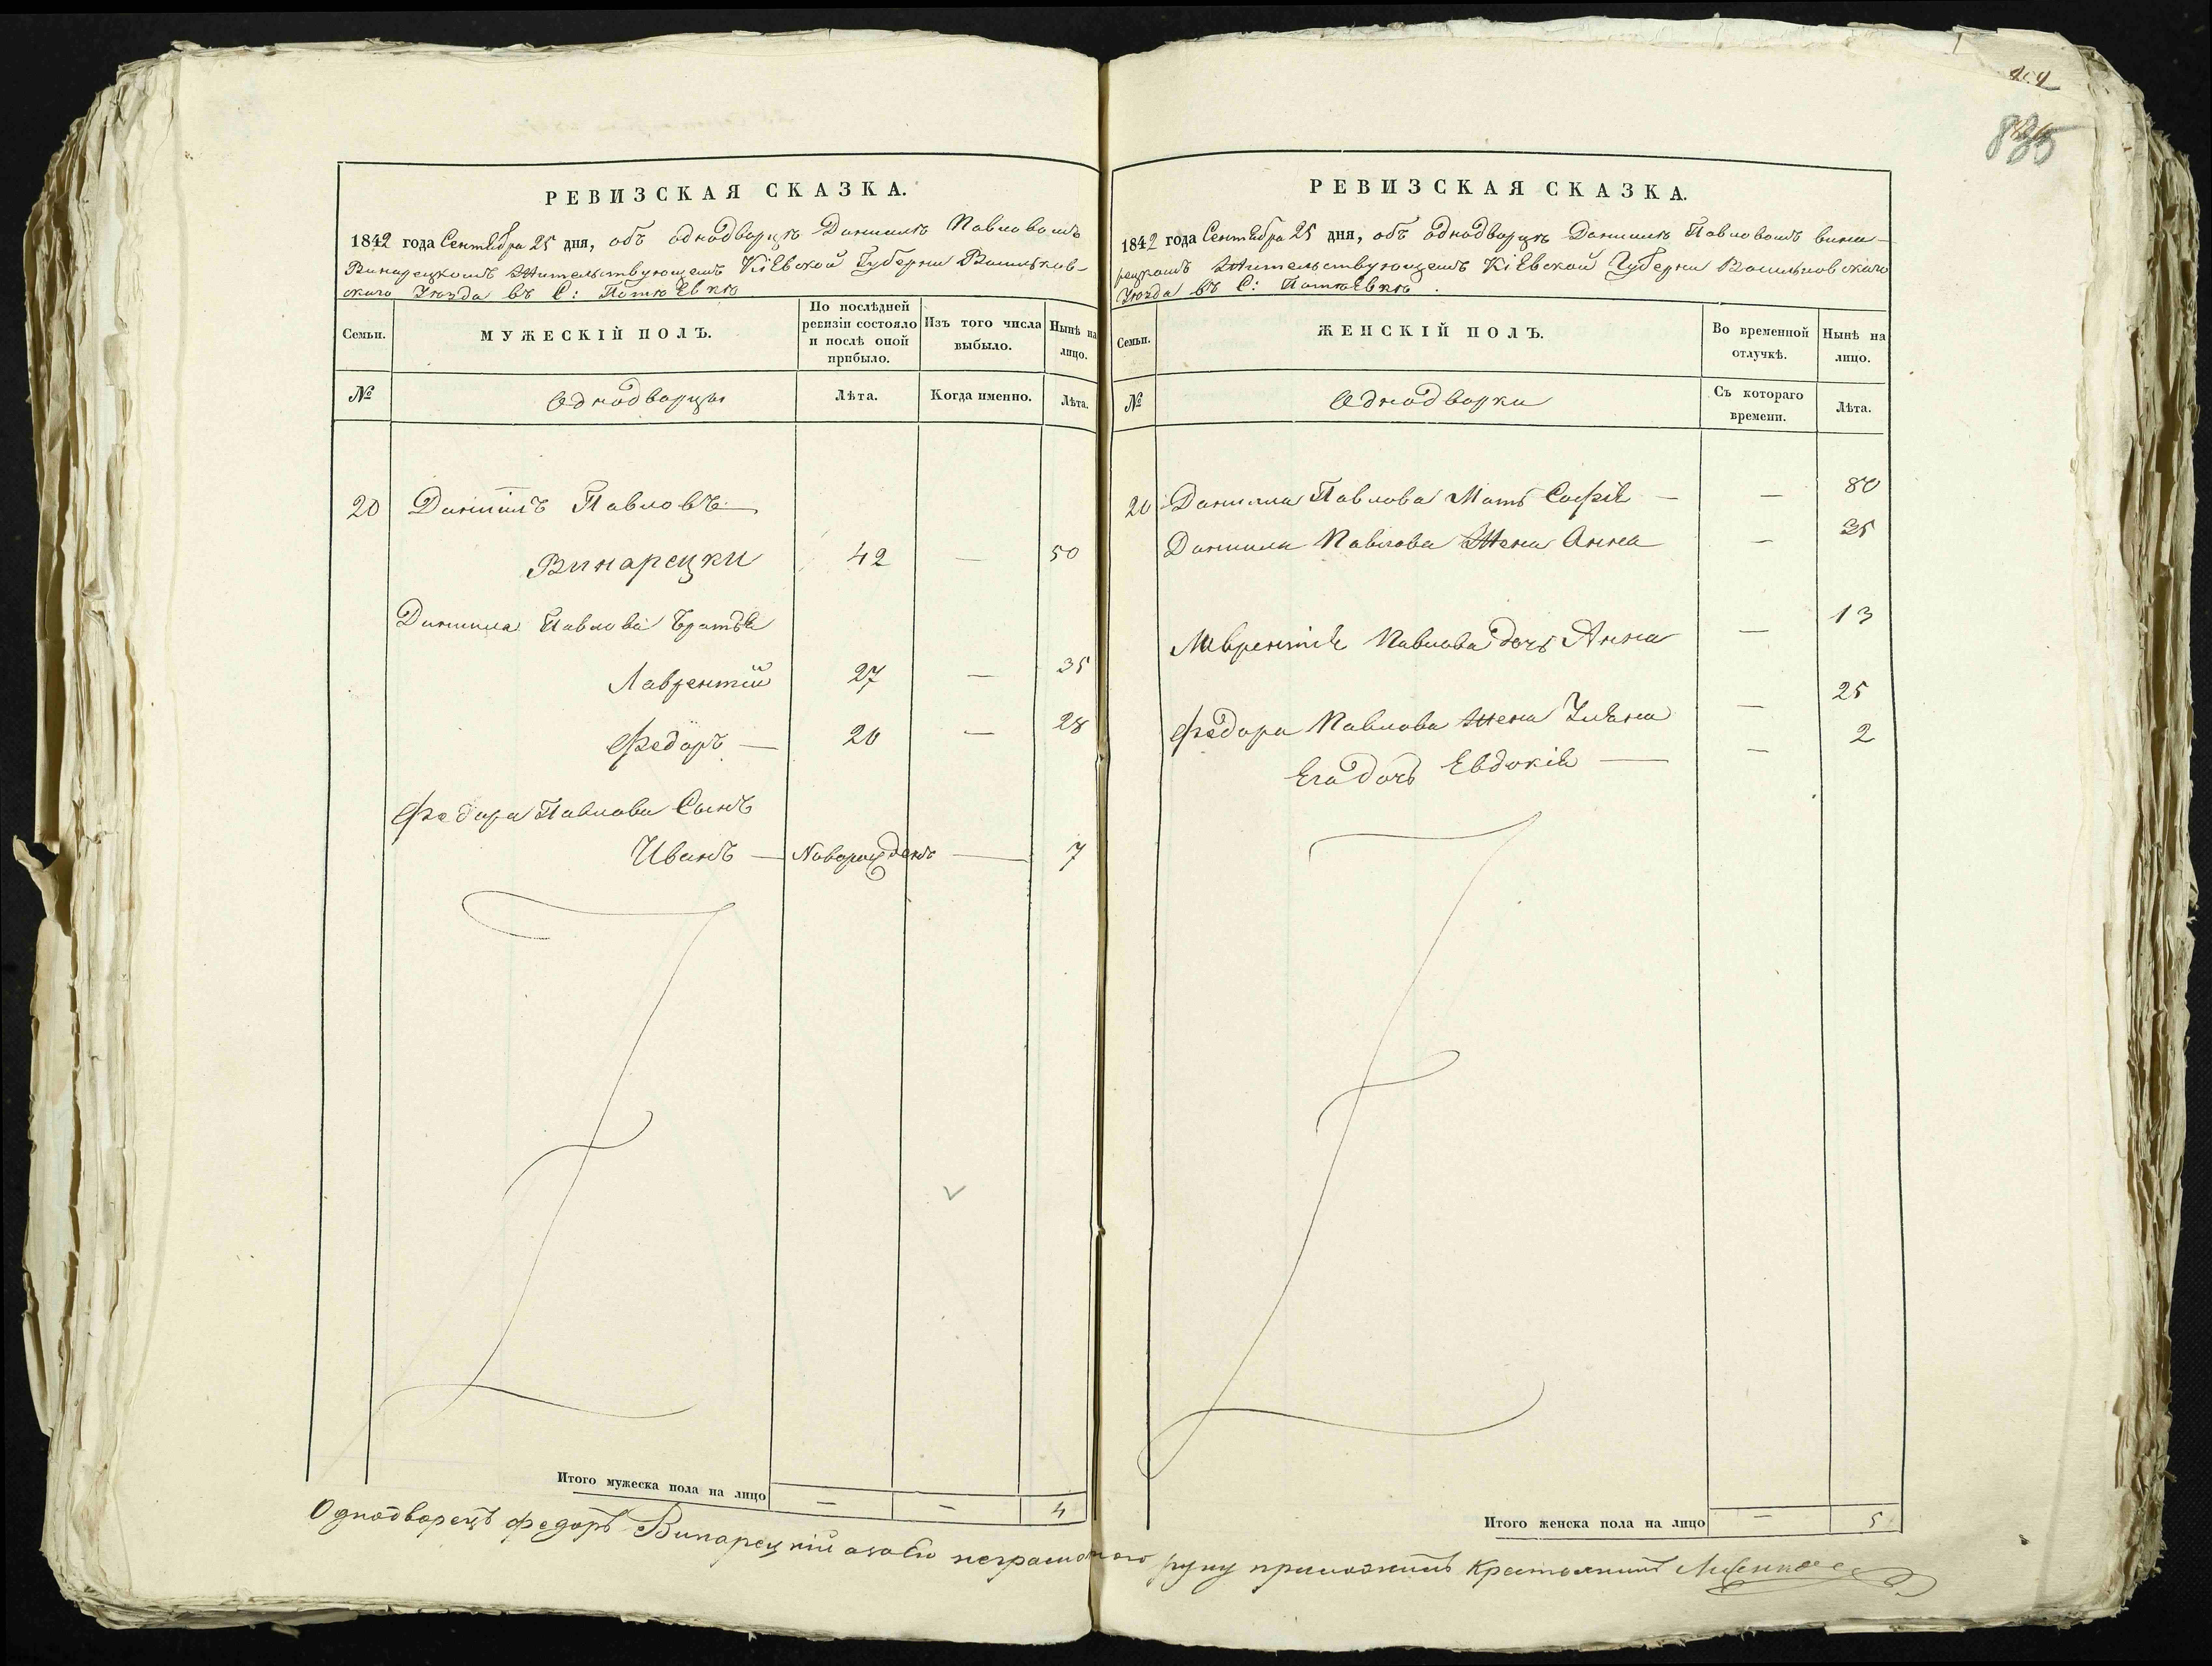 РЕВИЗСКАЯ СКАЗКА.
1842 года Сентября 25 дня, объ однодворцѣ Данилѣ Павловомъ
Винарецкомъ жительствующемъ Кіевской Губерни Васильков-
скаго Уѣзда въ С: Потіевкѣ
Семьи.
МУЖЕСКІЙ ПОЛЪ.
По послѣдней ревизіи состояло и послѣ оной прибыло.
Изъ того числа выбыло.
Нынѣ на лицо.
№
Однодворцы
Лѣта.
Когда именно.
Лѣта.
20 Данiилъ Павловъ —
Винарецки 42 — 50
Данила Павлова братья
Лаврентій 27 — 35
Федоръ — 20 — 28
Федора Павлова Сынъ
Иванъ — Новорожденъ — 7
Итого мужеска пола на лицо — — 4
202
835
РЕВИЗСКАЯ СКАЗКА.
1842 года Сентября 25 дня, объ однодворцѣ Данилѣ Павловомъ вина-
рецкомъ жительствующемъ Кіевской Губерни Васильковскаго
Уѣзда въ С: Потіевкѣ.
Семьи.
ЖЕНСКІЙ ПОЛЪ.
Во временной отлучкѣ.
Нынѣ на лицо.
№
Однодворки
Съ котораго времени.
Лѣта.
20 Данила Павлова Мать Софія — — 80
Данила Павлова Жена Анна — 35
Лаврентія Павлова дочь Анна — 13
Федора Павлова жена Уліяна — 25
Его дочь Евдокія — — 2
Итого женска пола на лицо — 5
Однодворецъ Федоръ Винарецкій а за его неграмотного руку приложилъ Крестянинъ